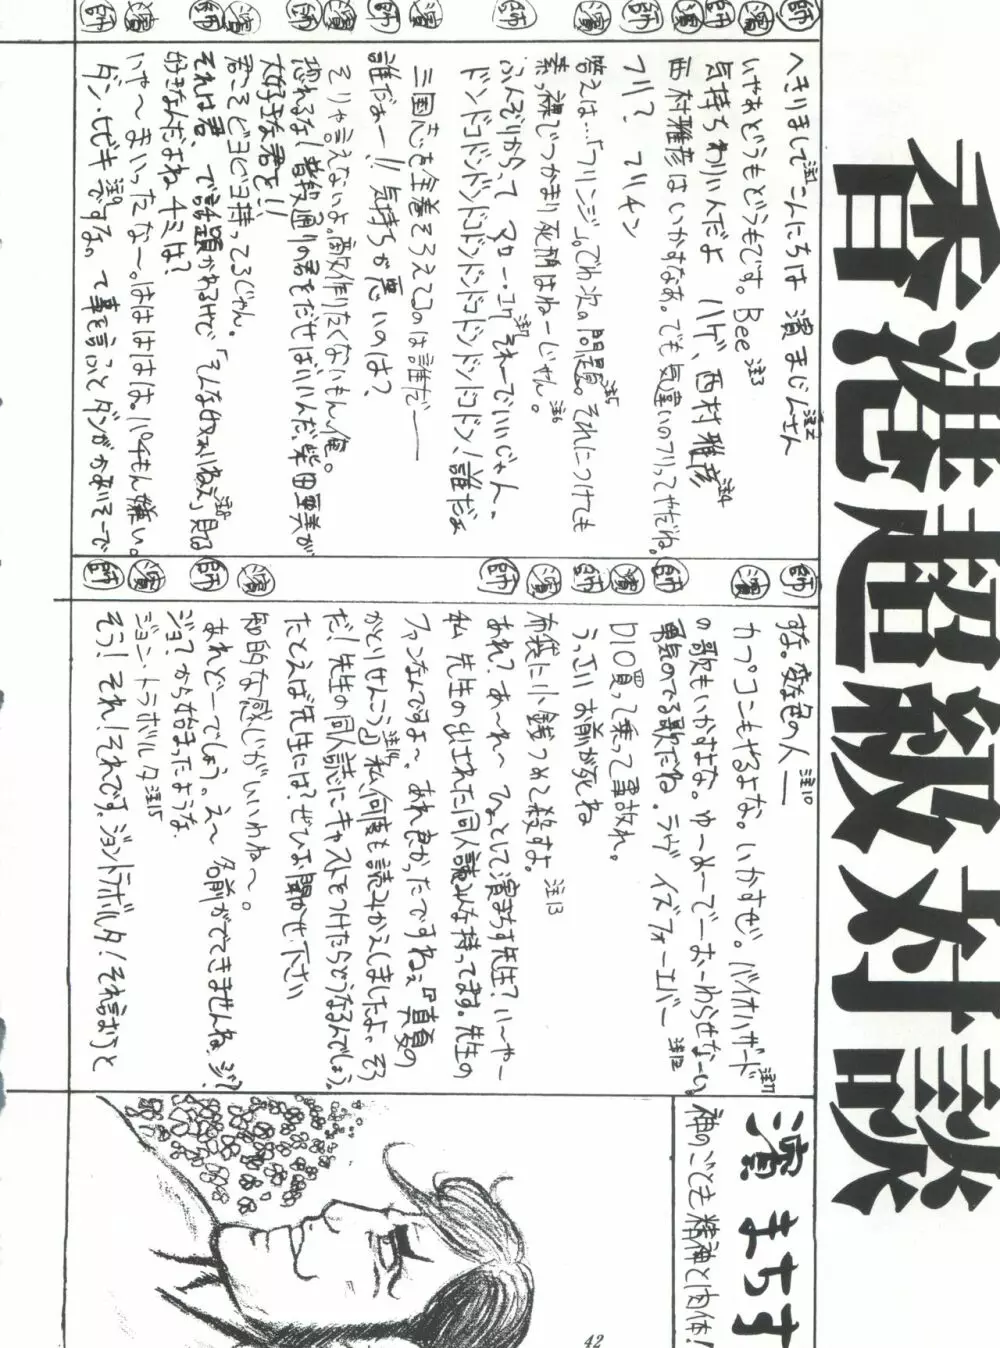 香港超級対談
師 へきりまして注1こんにちは 濱まじんさん注2
濱 いやあどうもどうもです。Bee注3
師 気持ちわりいんだよ ハゲ、西村雅彦注4
濱 西村雅彦はいかすなあ。でも気違いのフリってやだね。
師 フリ? でリチン
濱 答えは…「フリンジ」。でわ次の問題。注5それにつけても
素っ裸でつかまり死刑はねーじゃん。注6
師 ふんぞりかって マロー・コグ注7 それーでいいじゃん。
ドンドコドンドンドコドンドンドコドンドンドコドン!誰だよ
濱 三国志を全巻そろえてるのは誰だ――
師 誰だぁー!!気持ちが悪いのは?
濱 そりゃ言えないよ。敵作りたくないもん俺。
師 恐れるな!普段通りの君をだせばいいんだ、柴田亜美が
大好きな君を!!
濱 君こそピヨピヨ持ってるじゃん。
師 それは君、で話題かわるけで「そんな奴ぁいねえ」注8 見る
好きなんだよね チミは?
濱 いやーまいったなー。はははははは。パチもん嫌い。
師 ダン・ヒビキ注9ですな。って事を言うとダンがかわいそーで
師 すな。変な色の人― 注10
濱 カプコンもやるよな。いかすぜ。バイオハザード注11
の歌もいかすよな。ゆーめーで―おーわらせなーい。
師 勇気のでる歌だね。ラヴ イズフォーエバー 注12
濱 DIO買って乗って事故れ。
師 うっさい お前が死ね
濱 布袋に小銭つめて殺すよ。注13
師 あれ?あ〜れ〜 ひょっとして濱まちす先生?い〜や―
私 先生の出された同人誌みんな持ってます。先生の
ファンなんですよ〜、あれ良かったですねぇ『真夏の
かとりせんこう』注14 私何度も読みかえしましたよ。そう
だ!先生の同人誌にキャストをつけたらどうなるんでしょう。
たとえば先生には?ぜひお聞かせ下さい
濱 知的な感じがいいわね〜。
師 あれどーでしょう。え〜 名前がでてきませんね、ジ?
ジョ?から始まったような
濱 ジョン・トラボルタ 注15
師 そう!それ!それです。ジョントラボルタ!それ言おうと
濱 まちす
神のごとき精神と肉体!
42